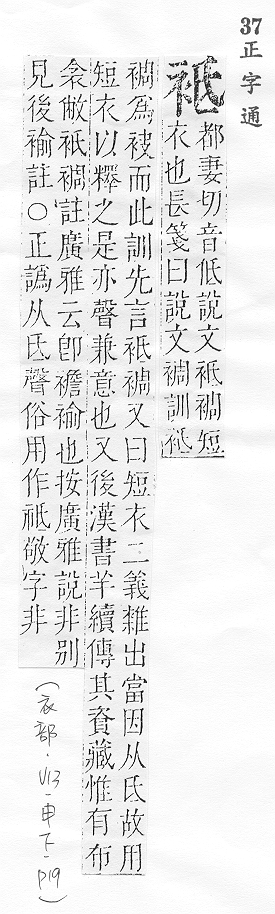 37正字通
袛
都妻切音低說文袛裯短
衣也長箋曰說文裯訓袛
裯為被而此訓先言袛裯又曰短衣二義雜出當因从氐故用
短衣以釋之是亦聲兼意也又後漢書羊續傳其資藏惟有布
衾敝袛裯註廣雅云卽襜褕也按廣雅說非別
見後褕註○正譌从氐聲俗用作祗敬字非
(衣部.V13-申下-P19)